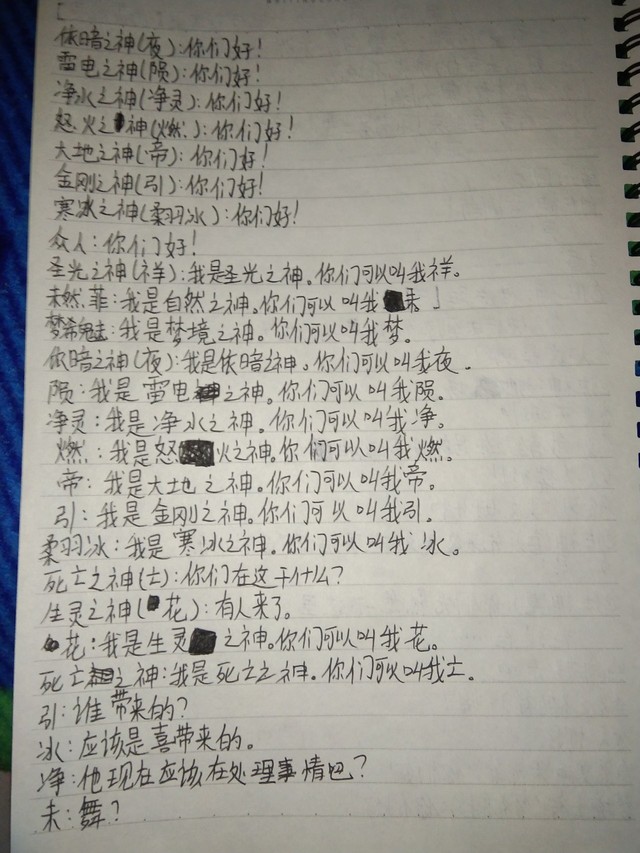 依暗之神(夜):你们好!
雷电之神(陨):你们好!
净水之神(净灵):你们好!
怒火之神(燃):你们好!
大地之神(帝):你们好!
金刚之神(引):你们好!
寒冰之神(柔羽冰):你们好!
众人:你们好!
圣光之神(祥):我是圣光之神。你们可以叫我祥。
未然菲:我是自然之神。你们可以叫我未」
梦希魅:我是梦境之神。你们可以叫我梦。
依暗之神(夜):我是依暗之神。你们可以叫我夜。
陨:我是雷电之神。你们可以叫我陨。
净灵:我是净水之神。你们可以叫我净。
燃:我是怒火之神。你们可以叫我燃。
帝:我是大地之神。你们可以叫我帝。
引:我是金刚之神。你们可以叫我引。
柔羽冰:我是寒冰之神。你们可以叫我冰。
死亡之神(士):你们在这干什么?
生灵之神(花):有人来了。
花:我是生灵之神。你们可以叫我花。
死亡之神:我是死亡之神。你们可以叫我士。
引:谁带来的?
冰:应该是喜带来的。
净:他现在应该在处理事情吧?
未:舞?